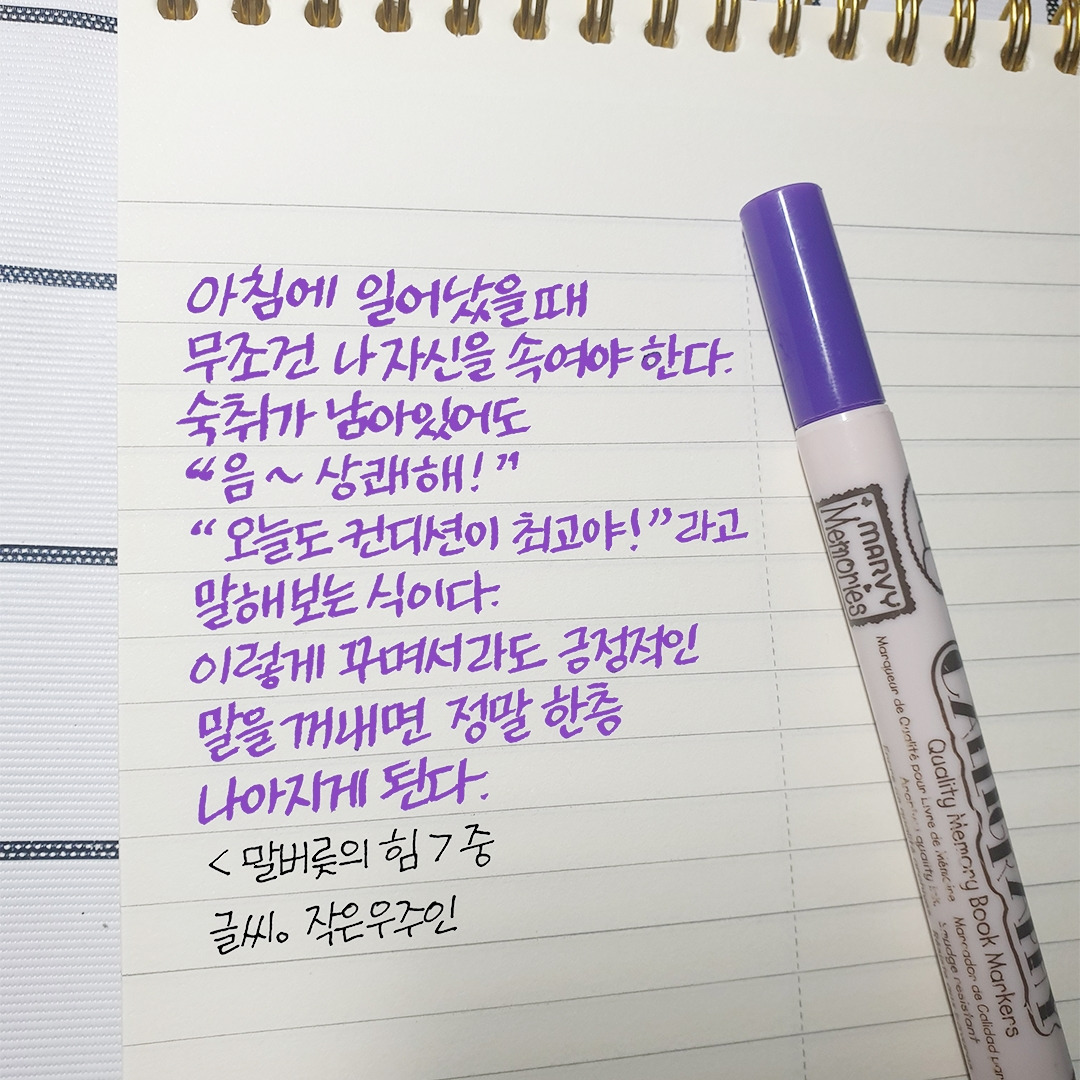 아침에 일어났을때
무조건 나 자신을 속여야 한다.
숙취가 남아있어도
“음~ 상쾌해!”
“오늘도 컨디션이 최고야!”라고
말해보는 식이다.
이렇게 꾸며서라도 긍정적인
말을 꺼내면 정말 한층
나아지게 된다.
<말버릇의 힘> 중
글씨。작은우주인
MARVY
Memories
CALLIGRAPHY
Quality Memory Book Markers
Marqueur de Qualité pour Livre de Mémoire
Marcador de Calidad par
smudge resistant